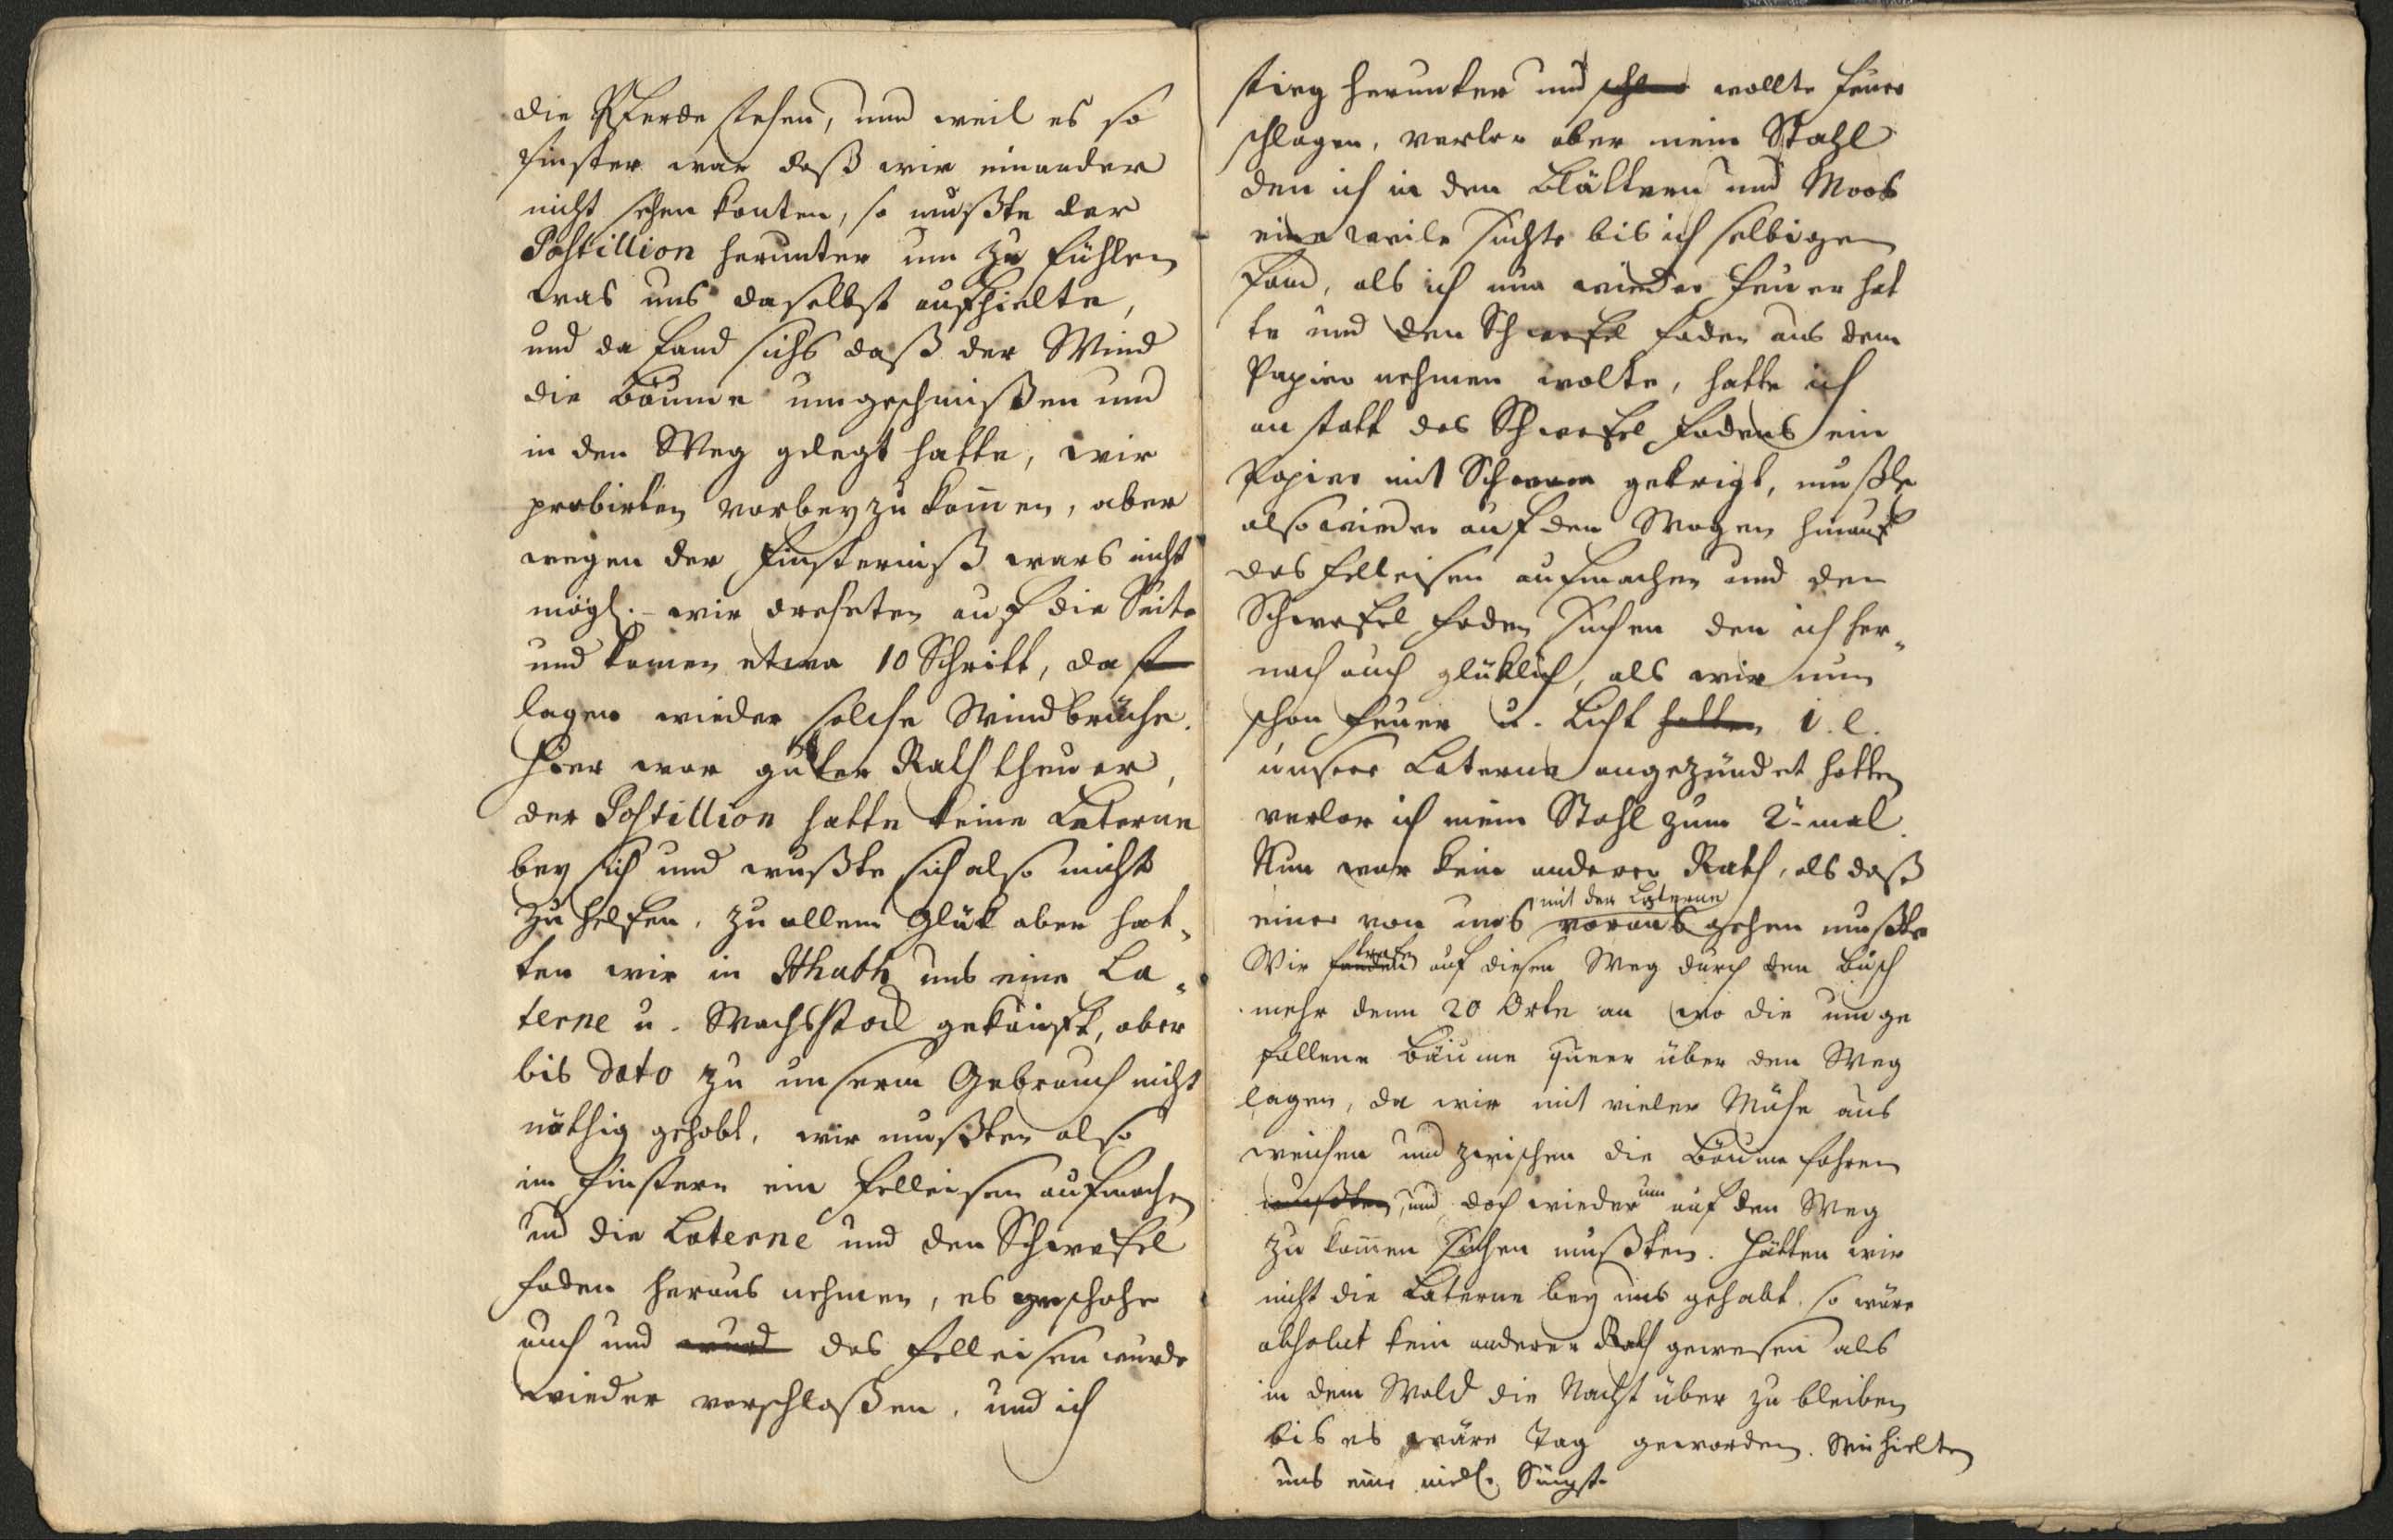 die Pferde stehen, und weil es so
finster war daß wir einander
nicht sehen konten, so mußte der
Postillion herunter um zu fühlen
was uns daselbst aufhielte,
und da fand sichs daß der Wind
die Bäume umgeschmißen und
in den Weg gelegt hatte, wir
probirten vorbey zu kom̄en, aber
wegen der Finsterniß wars nicht
mögl. wir dreheten auf die Seite
und kamen etwa 10 Schritt, da
lagen wieder solche Windbrüche.
Hier war guter Rath theuer,
der Postillion hatte keine Laterne
bey sich und wußte sich also nicht
zu helfen, zu allem Glük aber hat-
ten wir in uns eine La-
terne u. Wachsstok gekauft, aber
bis dato zu unserm Gebrauch nicht
nöthig gehabt, wir mußten also
im Finstern ein Felleisen aufmachen
und die Laterne und den Schwefel
faden heraus nehmen, es geschahe
auch und wurd das Felleisen wurde
wieder verschloßen, und ich
stieg herunter und wollte Feuer
schlagen, verlor aber mein Stahl
den ich in den Blättern und Moos
eine weile suchte bis ich selbigen
fand, als ich nun wieder Feuer hat
te und den Schwefel faden aus dem
Papier nehmen wolte, hatte ich
an statt des Schwefel fadens ein
Papier mit gekrigt, mußte
also wieder auf den Wagen hinauf
das Felleisen aufmachen und den
Schwefel faden suchen den ich her-
nach auch glüklich, als wir nun
schon Feuer u. Licht hatten i. e.
unsere Laterne angezündet hatten
verlor ich mein Stahl zum 2-mal.
Nun war kein anderer Rath, als daß
mit der Laterne
einer von uns voraus gehen mußte
trafen
Wir fanden auf diesem Weg durch den Busch
mehr denn 20 Orte an wo die umge
fallene Bäume queer über den Weg
lagen, da wir mit vieler Mühe aus
weichen und zwischen die Bäume fahren
mußten, und doch wieder um auf den Weg
zu kom̄en suchen mußten. Hätten wir
nicht die Laterne bey uns gehabt, so wäre
absolut kein anderer Rath gewesen als
in dem Wald die Nacht über zu bleiben
bis es wäre Tag geworden. Wir hielten
uns eine